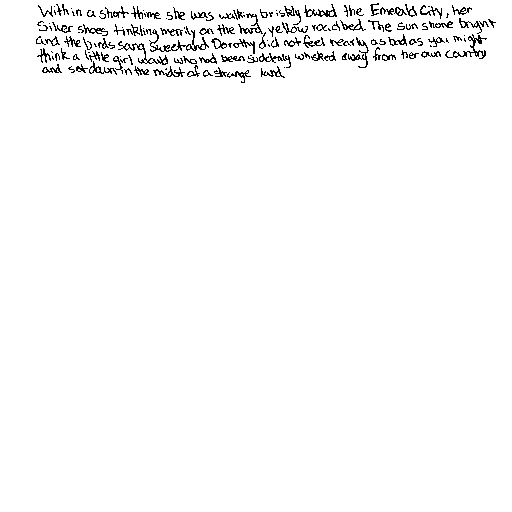 Within a short thime she was walking briskly toward the Emerald City, her
Silver shoes tinkling merrily on the hard, yellow roadbed. The sun shone bright
and the birds sang sweet and Dorothy did not feel nearly as bad as you might
think a little girl would who had been suddenly whisked away from her own country
and set down in the midst of a strange land